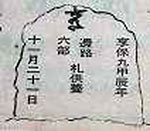 享保九甲辰年
邊路
六部
札供養
十一月二十一日